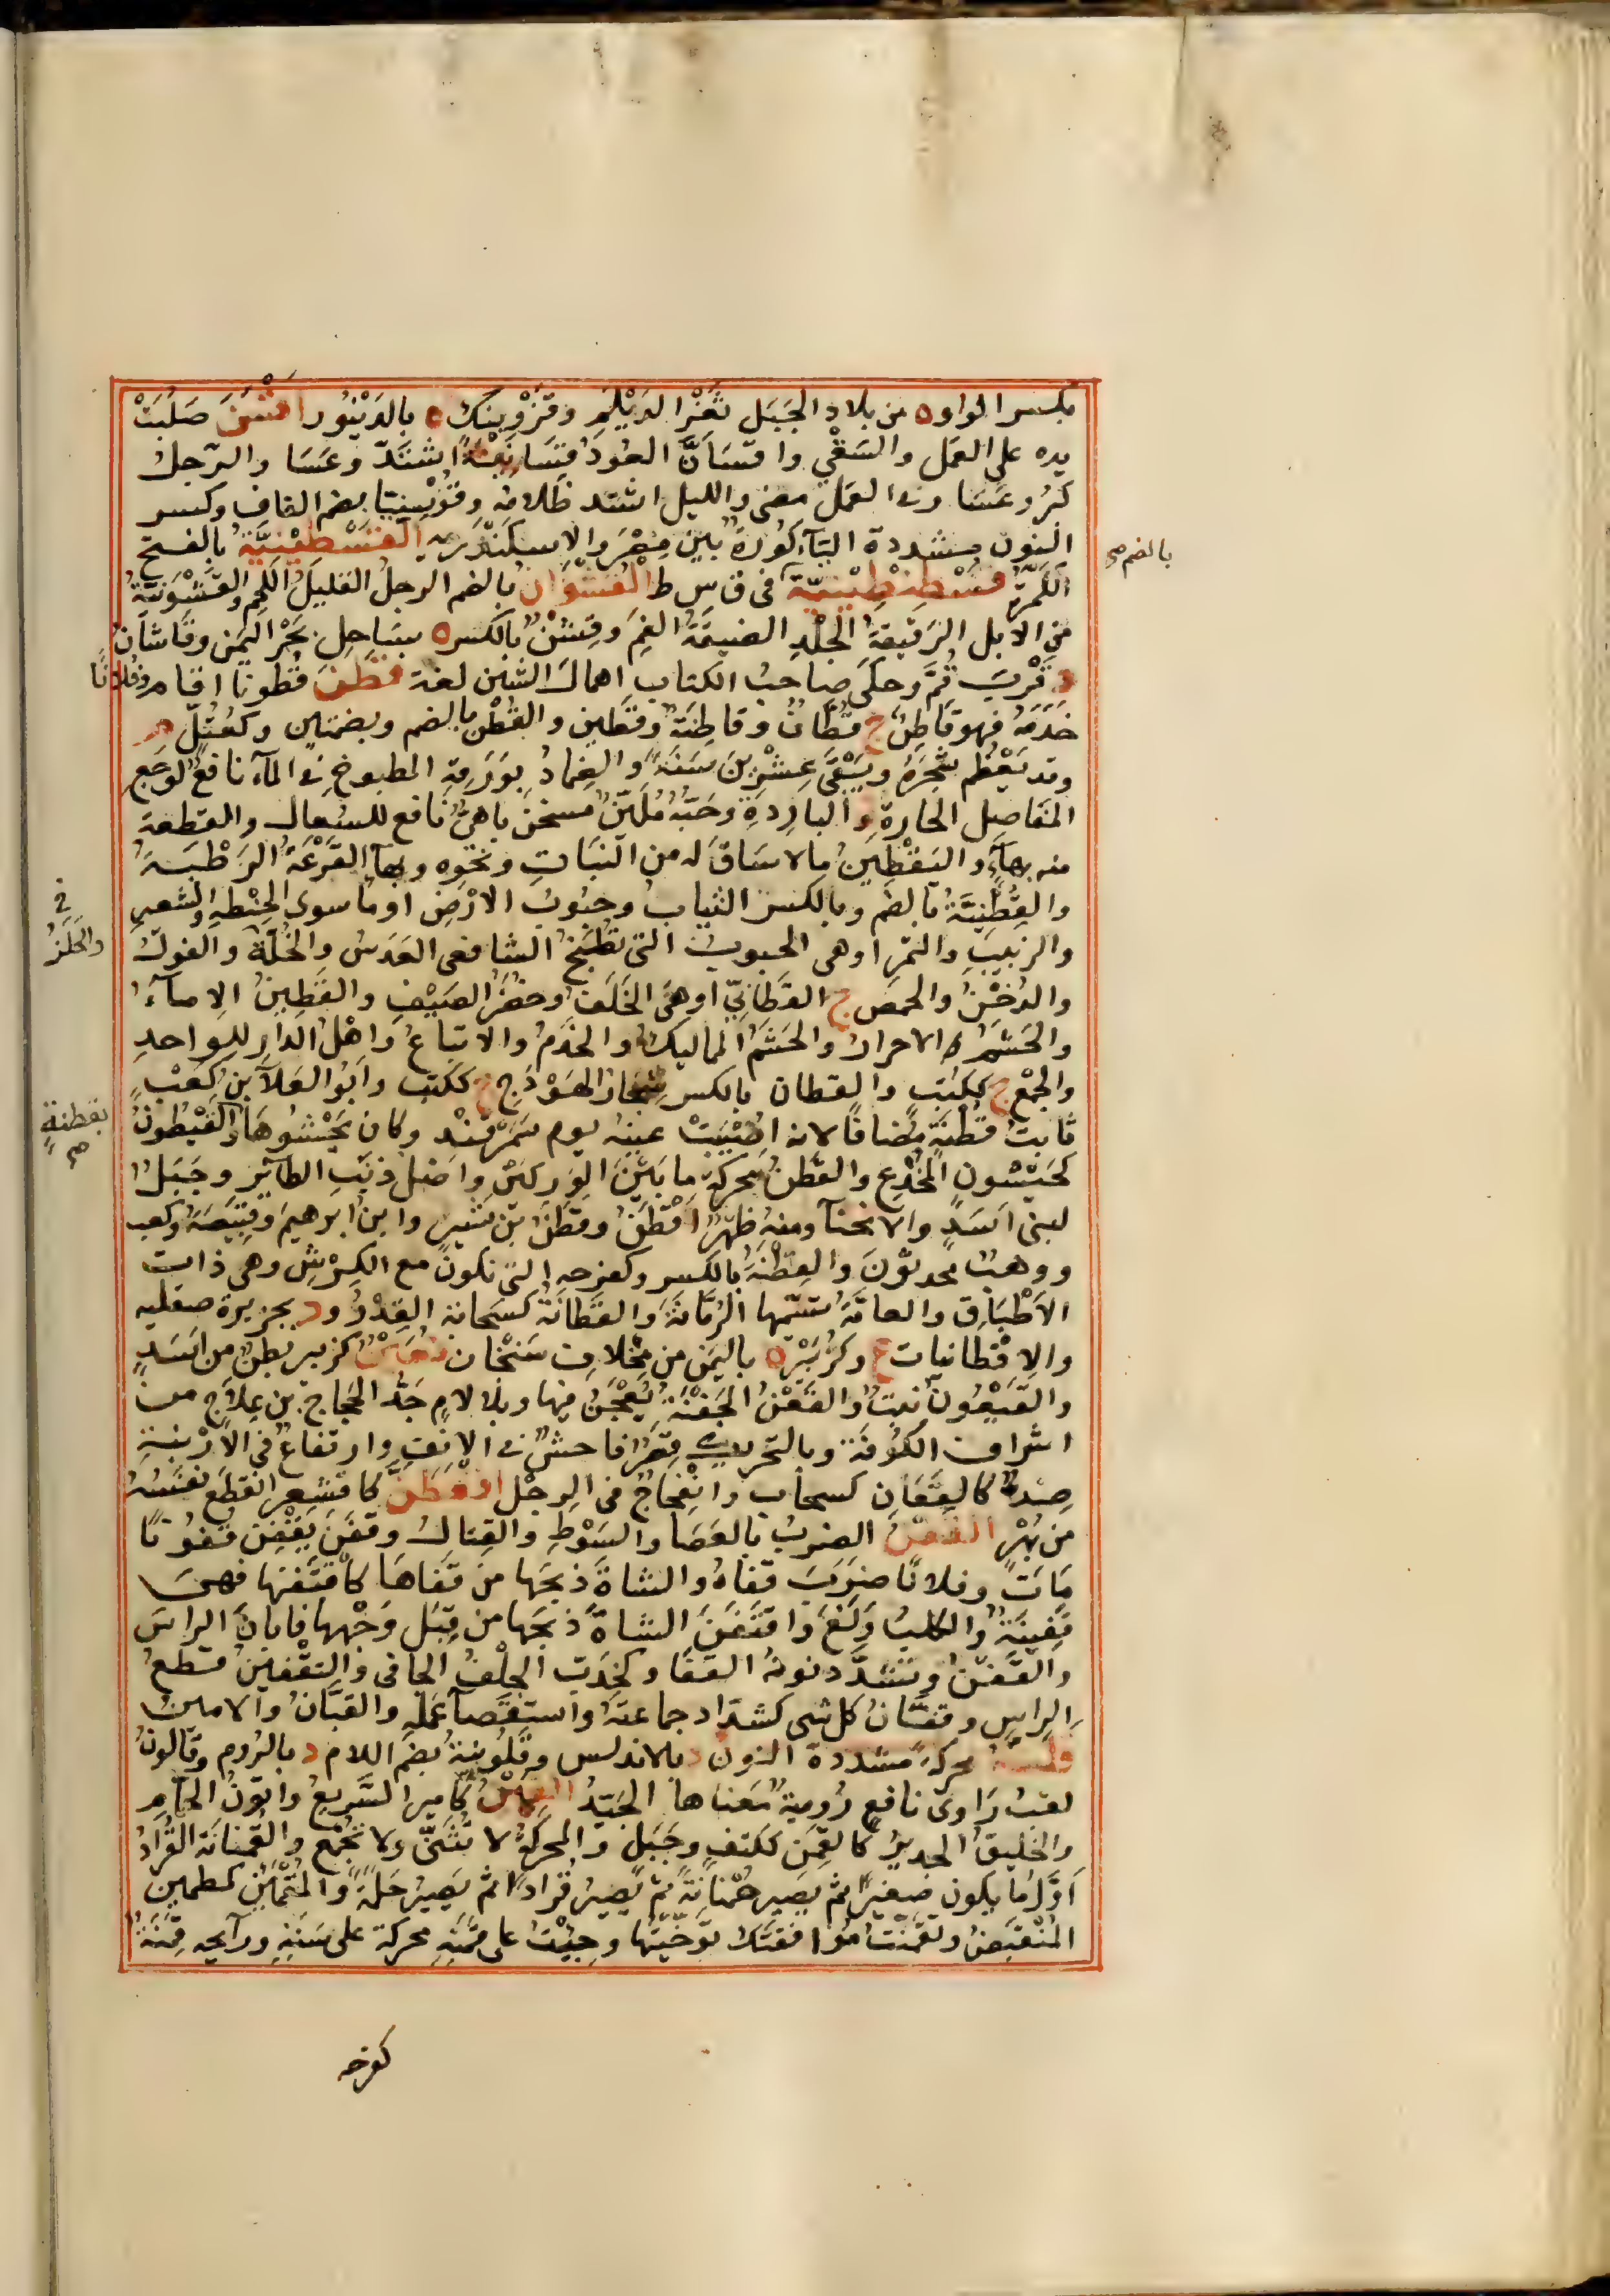 بكسر الواو ه من بلاد الجَبَل ثَغْرُ الدَيْلَمِ وقَزْوِينك ه بالدَيْنَوَر اقْسَنَ صَلُبَتْ
يده على العمل والسَقْيِ واقسَأنَّ العُودُ قُسَأنِينَةً اشتَدَّ وعَسَا والرَجلُ
كَبُرَ وعَسَا وفي العمل مضى والليل اشتد ظلامه وقُوسِينيَا بضم القاف وكسر
النون مشددة اليآء كُورَةٌ بين مِصْرَ والاسكندَريه القَسْطَبِيْنِيَّةُ بالفتح
بالضم صح
الكَمَرَة قُسْطَنْطِينِيَّة في ق س ط القُسْوان بالضم الرجلُ القليلُ اللحم والقُشْوَنِيَّةُ
من الابل الرَقيقةُ الجِلْدِ الضيقَةُ الفَمِ وقِشْنٌ بالكسر ه بسَاحِل بحْرِ اليَمن وقَاشَانُ
د قُرْبَ قُمَّ وحكَى صاحبُ الكتاب اهمالَ الشين لغة قَطَنَ قُطونا اقام وفُلانًا
خَدَمَهُ فهو قَاطِنٌ ج قُطَّانٌ وقاطِنَةٌ وقَطِين والقُطْن بالضم وبضمتين وكعُتُلٍّ م
وقد يَعْظُم شجَرُهُ ويَبْقَى عِشْرِينَ سَنَةً والضِمادُ بوَرَقِهِ المطبوخ في المآء نافعٌ لوَجَعِ
المَفاصِل الحارة والباردَةِ وحَبُّهُ مُلَيِّنٌ مسخن باهيٌّ نافع للسُعال والقطعة
منه بهآء واليَقْطِينُ ما لا سَاقَ له من النبَاتِ ونحوه وبهآء القَرْعَةُ الرَطْبَةُ
والقُِطْنِيَّةُ بالضم وبالكسر الثيابُ وحبُوبُ الارْضِ او ما سوى الحِنْطَهِ والشعيرِ
والزبيب والتمر او هي الحبوبُ التي تُطْبَخُ الشافعي العَدَسُ والخُلَّةُ والفولُ
والدُخْنُ والحمص ج القَطَانِيُّ او هي الخَلَفُ وخُضَرُ الصَيْفِ والقَطِينُ الاِمآءُ
والحَشَمُ الاحرارُ والحَشَمُ المماليكُ والخَدَمُ والاتباعُ واهْلُ الدارِ للواحدِ
والجمْعِ ج ككُتُبٍ والقِطان بالكسر شِجارُ الهَوْدَجِ ج ككتُبٍ وابُو العَلآء بنُ كَعْبٍ
ثابتُ قُطْنَةَ مُضافًا لانه اُصِيْبَتْ عينُهُ يوم سَمَرْقَنْد وكانَ يَحْشُوهَا والقَيْطُونُ
بقطنةٍ صح
كحَيْشُونٍ المُخْدَع والقَطَنُ محركةً ما بَيْنَ الوَرِكَيْنِ واصْلُ ذَنَبِ الطائر وجَبَلٌ
لبني اَسَدٍ والانحنآء ومنه ظَهْرٌ اَقْطَنُ وقَطَنُ بن نُسَيْرٍ وابنُ ابرهيم وقَبِيصَةُ وكعب
ووَهْبٌ محدثونَ والقِطْنَةُ بالكسر وكفرحه التي تكونُ مع الكِرْش وهي ذات
الاَطْبَاق والعامّةُ تسَمّيها الرُمّانَةَ والقَطَانَةُ كسَحَابة القِدْرُ ود بجزيرة صقليه
والاقطانيات ع وكزُبَيْر ه باليمن من مِخْلافِ سَنْحَان قُعَيْنٌ كزبير بطْنٌ من اَسَدٍ
والقَيْعُون نَبْتٌ والقَعْنُ الجَفْنَةُ يُعْجَنُ فيها وبلا لامٍ جَدُّ الحجاج بن عِلاجٍ من
اشراف الكُوفَة وبالتحريك قِصَرٌ فاحشٌ في الانفِ وارتفاعٌ في الارْنَبةِ
ضِدٌّ كالقَعَانِ كسحاب وانْفِجاجٌ في الرجْل اقْعَطَنَّ كاقشعر انقَطَع نفَسُهُ
من بُهْرٍ القَفْنُ الضربُ بالعَصَا والسَوْطِ والقِتالُ وقفَنَ يَقْفِن قُفُونًا
مَاتَ وفلانًا ضرَبَ قفاهُ والشاةَ ذبَحَها من قَفاهَا كاقْتَفَنَها فهيَ
قَفِينَةٌ والكلبُ وَلَغَ واقتَفَنَ الشاةَ ذبحَها من قِبَل وَجْهِها فابانَ الراسَ
والقَفَنُّ وتشدَّد نونُهُ القَفَا وكخِدَبٍّ الجِلْفُ الجافي والتقْفينُ قطعُ
الراسِ وقفَّانُ كل شي كشدّاد جماعتُه واستِقْصآء عَمَله والقَبَّانُ والامينُ
قلنّة محركةً مشددة النون د بالاندلس وقَلُونِيَةُ بضم اللام د بالرُوم وقَالُونُ
لقبُ رَاوى نافعٍ رُوميةٌ مَعناها الجَيِّدُ القَمِينُ كامير السَّريعُ واتّونُ الحمّام
والخليقُ الجديرُ كالقَمِن ككتفٍ وجَبَلٍ والمحركَةُ لا تُثَنَّى ولا تُجْمَع والقُمْنانَة القُرادُ
اَوَّلَ ما يكون صغيرًا ثم يصير حَمْنانَةً ثم يَصِيرُ قُرادًا ثم يَصِيرُ حَلَمَةً والمُقْمَئِنُّ كمطمئن
المُنْقَبِضُ وتَقَمَّنْتُ مُوافقتَكَ تَوَخّيتُها وجِيْتُ على قَمَنِهِ محركة على سَنَنِهِ ورآيحه قَمِنَةٌ
كفرحه